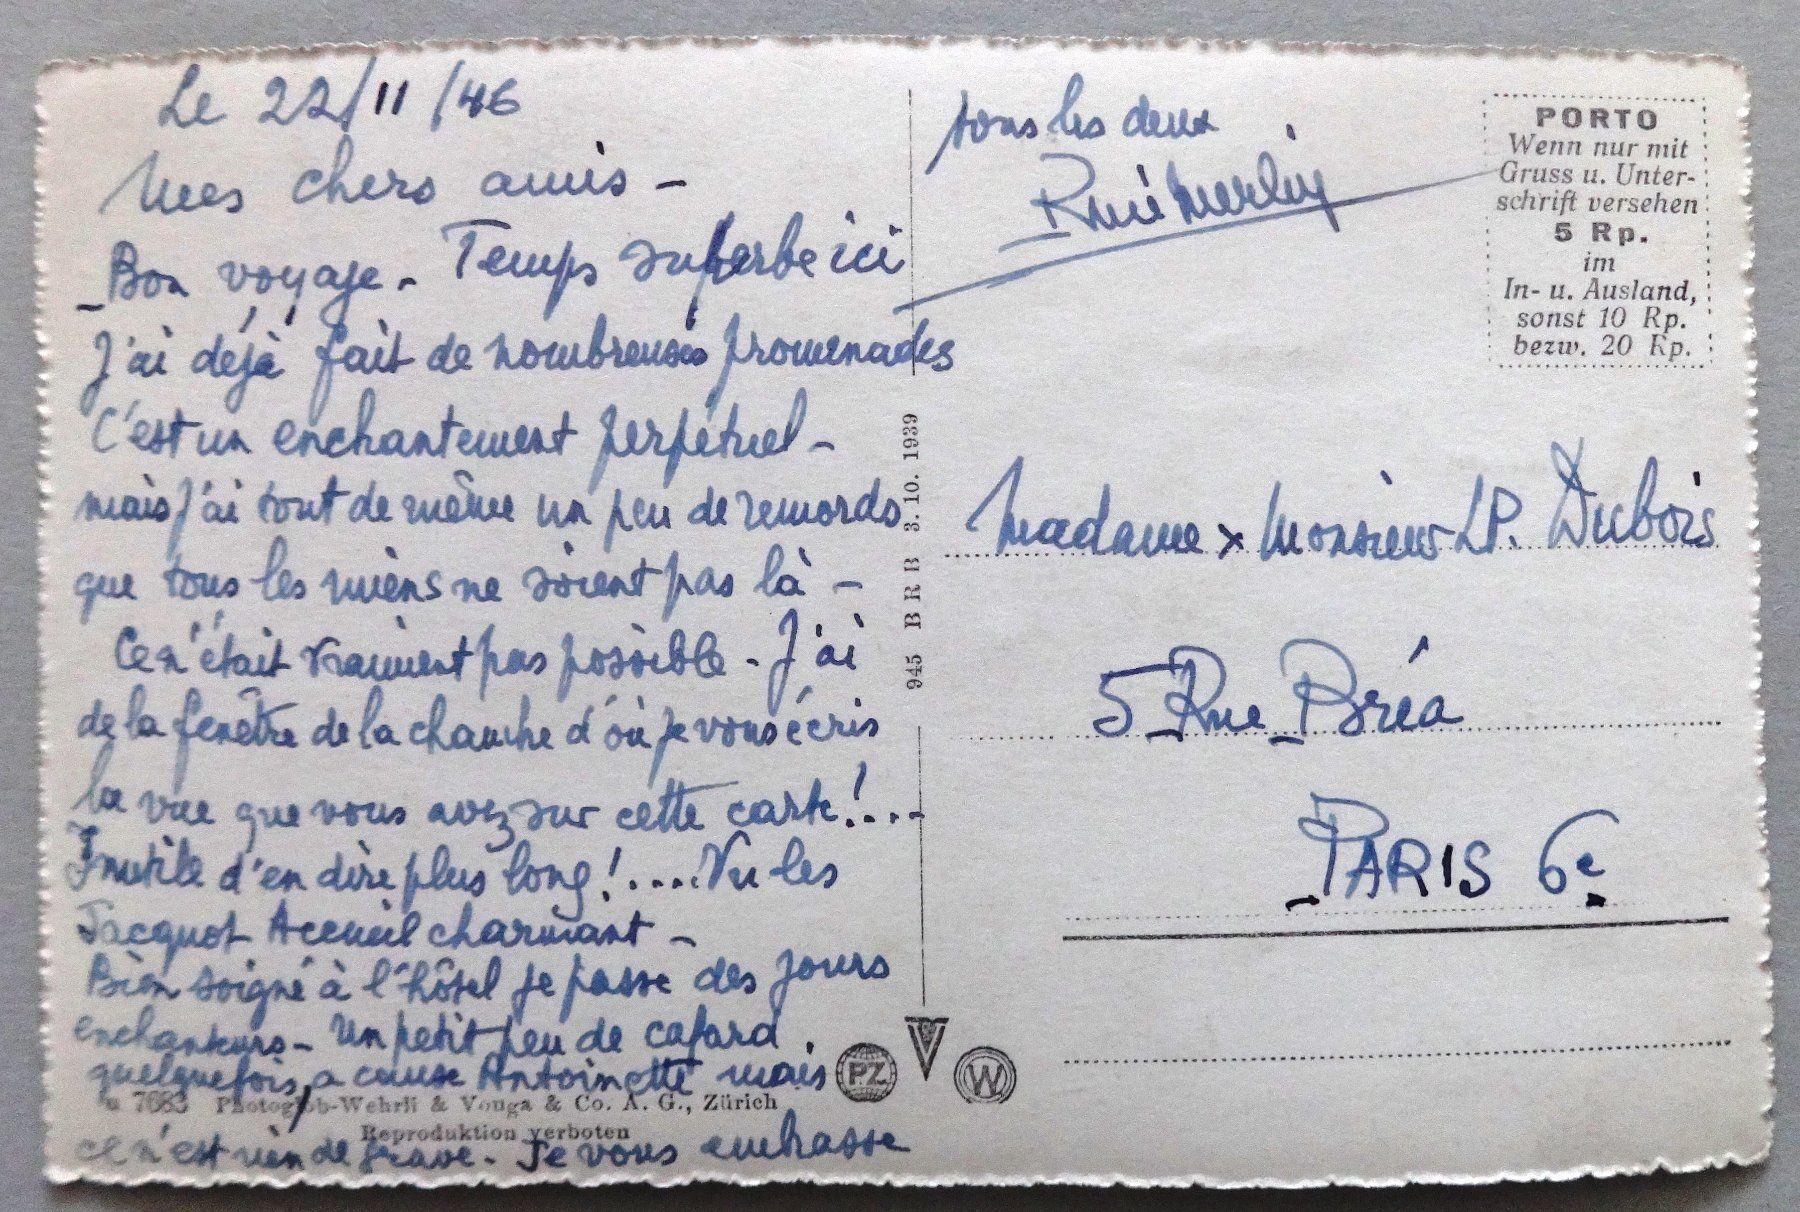 Le 22/11/46
Mes chers amis -
Bon voyage. Temps superbe ici
J'ai déjà fait de nombreuses promenades
C'est un enchantement perpétuel -
mais j'ai tout de même un peu de remords
que tous les miens ne soient pas là -
Ce n'était vraiment pas possible - J'ai
de la fenêtre de la chambre d'où je vous écris
la vue que vous avez sur cette carte !....
Inutile d'en dire plus long !.... Vu les
Jacquot Accueil charmant -
Bien soigné à l'hôtel je passe des jours
enchanteurs - Un petit peu de cafard
quelquefois, a cause Antoinette mais
ce n'est rien de grave. Je vous embrasse
tous les deux
7683 Photoglob-Wehrli & Vouga & Co. A. G., Zürich
Reproduktion verboten
945 BRB 3.10. 1939
PZ
V
W
PORTO
Wenn nur mit
Gruss u. Unter-
schrift versehen
5 Rp.
im
In- u. Ausland,
sonst 10 Rp.
bezw. 20 Rp.
Madame x Monsieur LP. Dubois
5 Rue Bréa
PARIS 6e